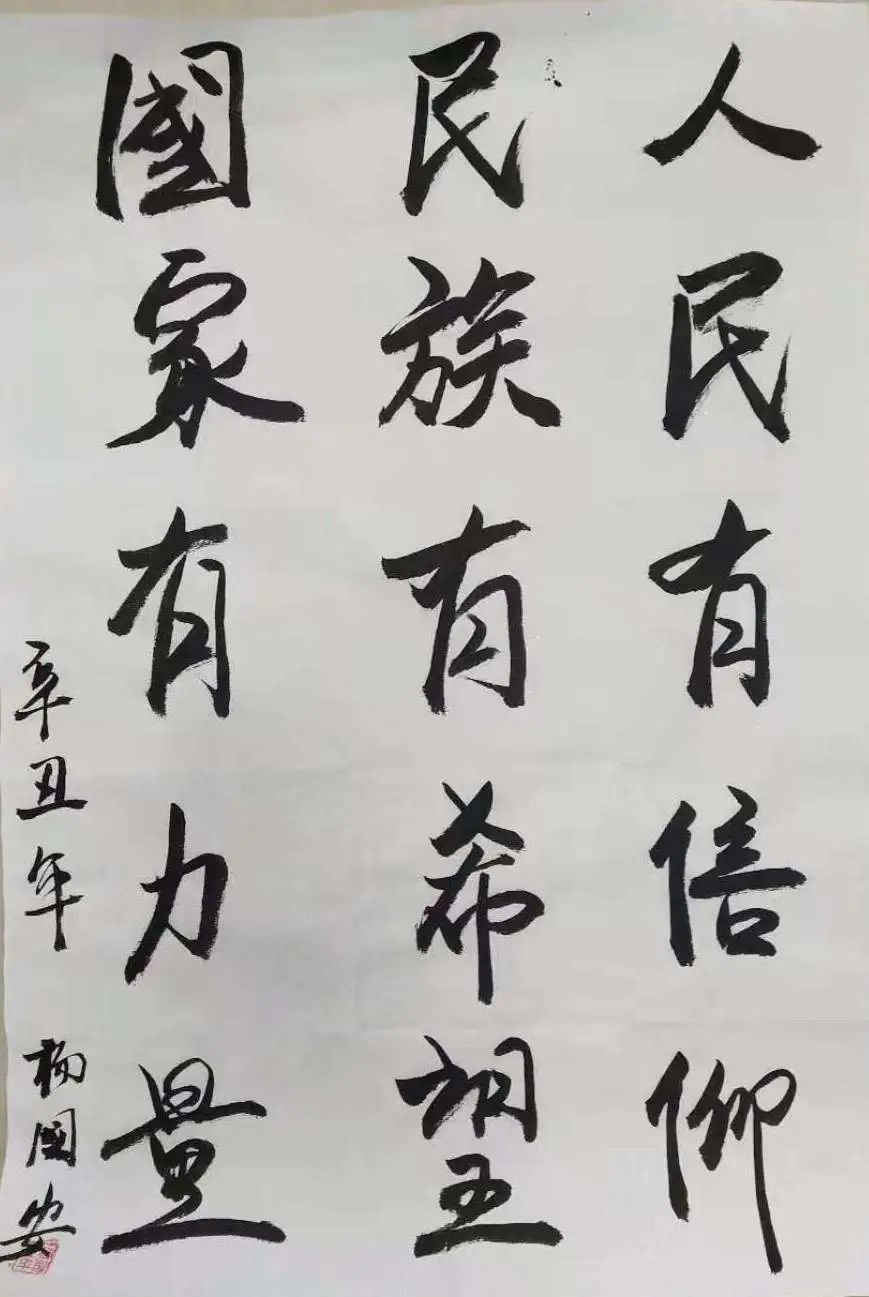 人民有倍仰
民族有希望
國家有力量
辛丑年 楊國安